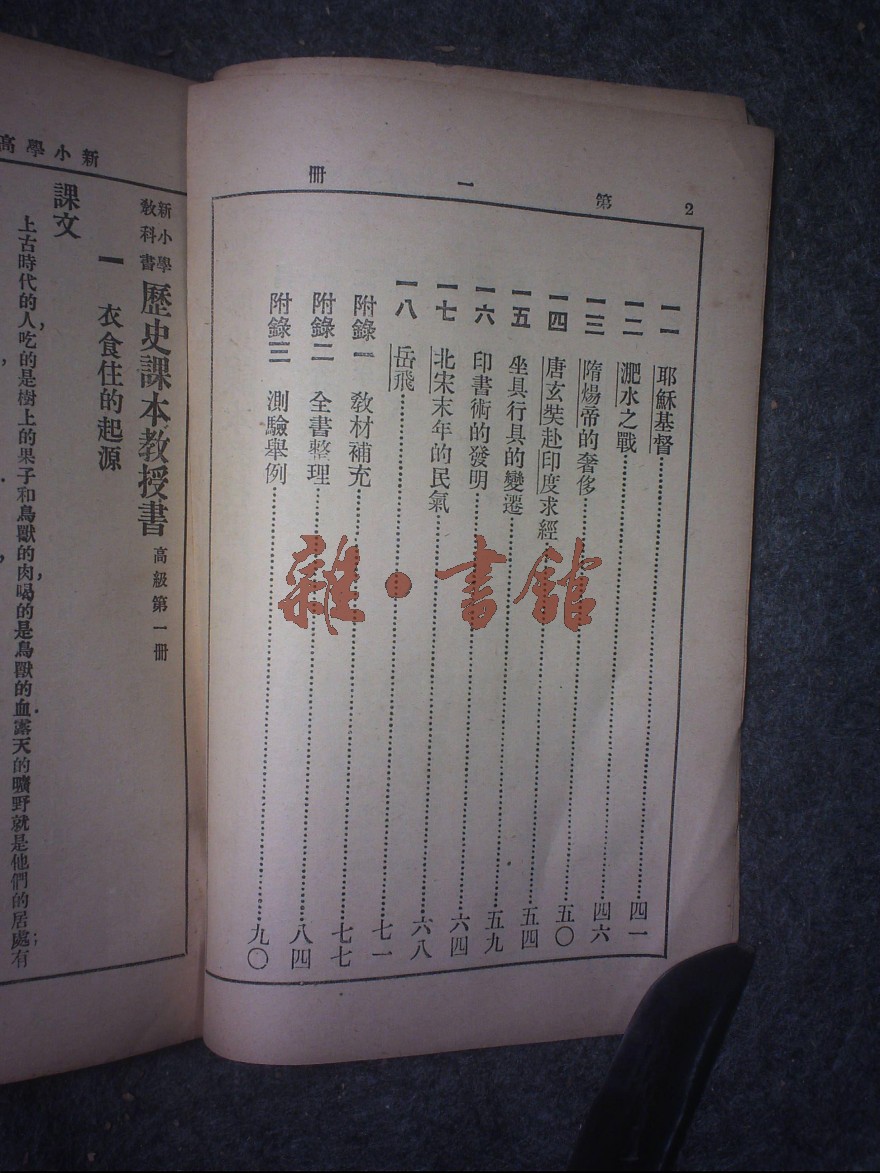 2 第一冊
一一 耶穌基督……四一
一二 淝水之戰……四六
一三 隋煬帝的奢侈……五〇
一四 唐玄奘赴印度求經……五四
一五 坐具行具的變遷……五九
一六 印書術的發明……六四
一七 北宋末年的民氣……六八
一八 岳飛……七一
附錄一 教材補充……七七
附錄二 全書整理……八四
附錄三 測驗舉例……九〇
雜·書館
新小學高
新小學教科書 歷史課本教授書 高級第一冊
一 衣食住的起源
課文
上古時代的人，吃的是樹上的果子和鳥獸的肉，喝的是鳥獸的血．露天的曠野就是他們的居處；有